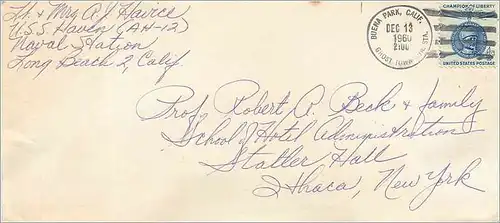 Lt. + Mrs A. J.
U.S.S. Haven (AH-12)
Naval Station
Long Beach 2, Calif.
BUENA PARK, CALIF.
DEC 13
1960
GHOST TOWN
CHAMPION OF LIBERTY
4¢
UNITED STATES POSTAGE
Prof. Robert A. Beck + family
School of Hotel Administration
Statler Hall
Ithaca, New York